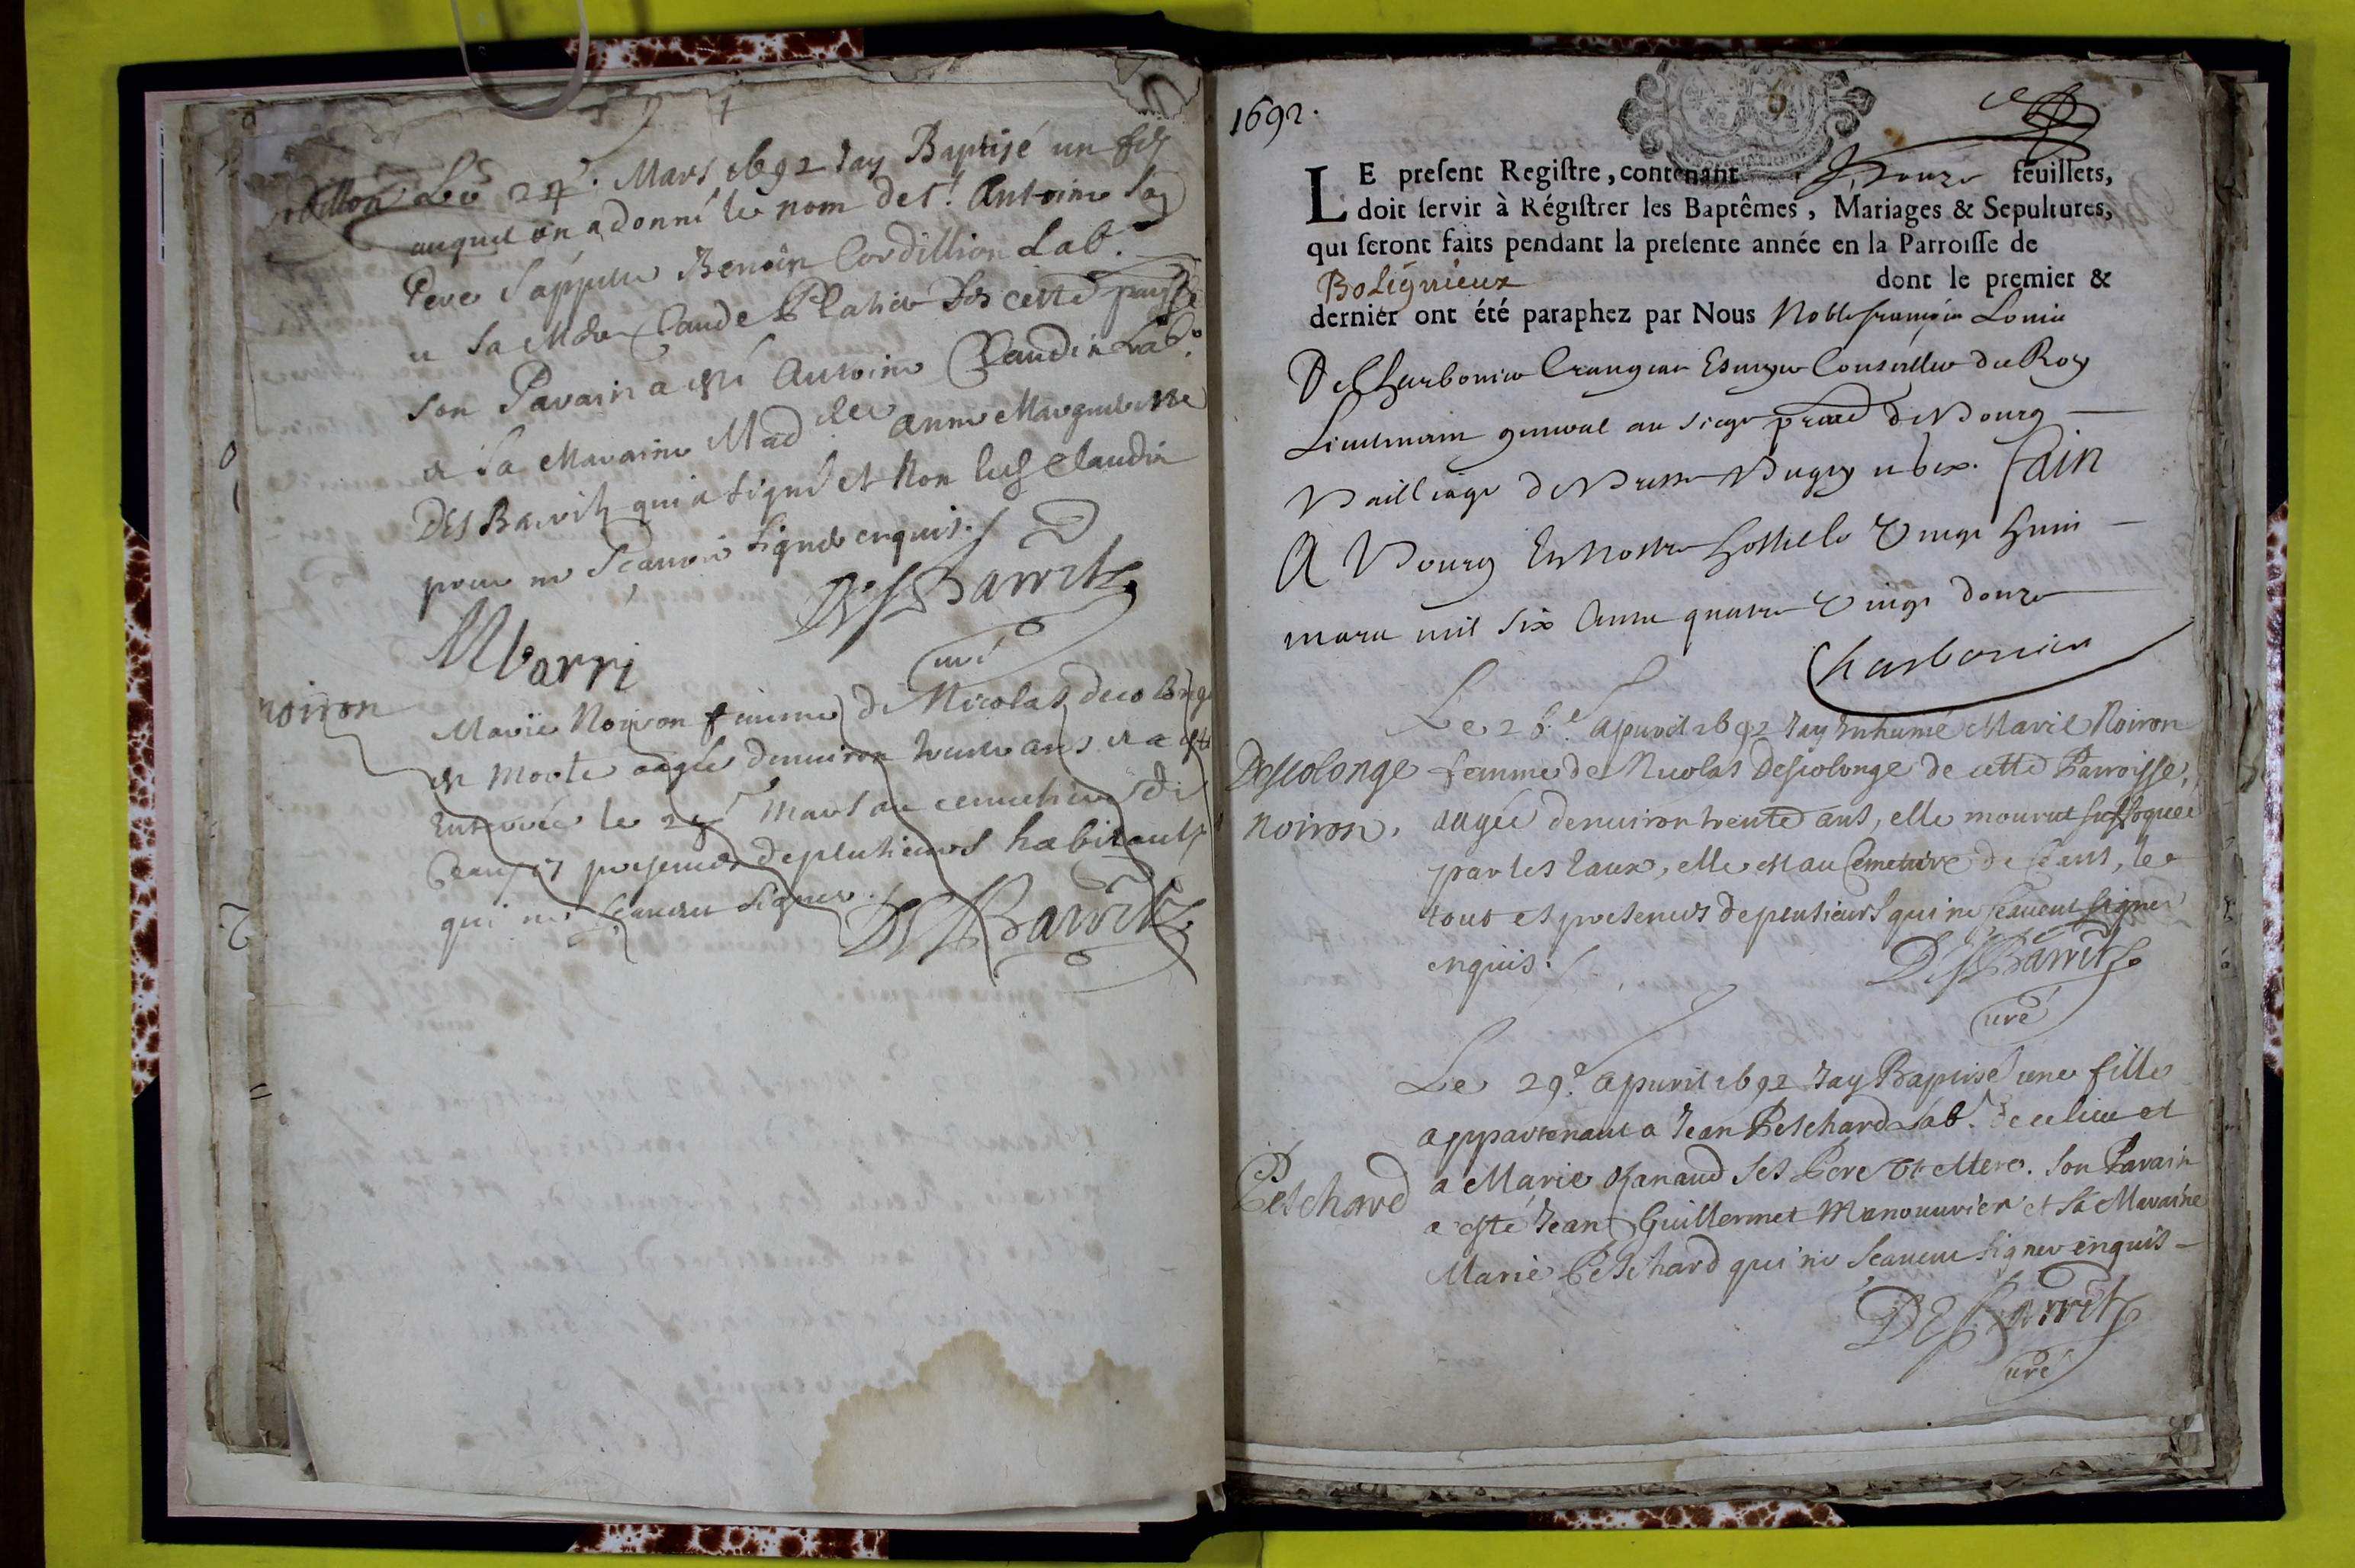 Le 24e. Mars 1692 Jay Baptisé un fils
auquel on a donné le nom de St. Antoine son
Pere s'appelle Benoîn Cordillion Lab.
et sa Mere Claude Platier de cette parsse
son Parain a esté Antoine Claudin Labr.
et sa Maraine Madlle anne Marguerite
DES Barvitz qui a signé et Non led Claudin
pour ne scavoir signer enquis./.
Mbarri
DesBarritz
curé
noiron
Marie Noiron femme de Nicolas decolonge
est morte aagée denuiron trente ans et a esté
Enterrée le Mars au cemetiere de
Ceans es presences de plusieurs habitants
qui ne scauent signer./.
DesBarritz
1692.
LE present Registre, contenant Douze feüillets,
doit servir à Régistrer les Baptêmes, Mariages & Sepultures,
qui seront faits pendant la presente année en la Parroisse de
Boligneux dont le premier &
dernier ont été paraphez par Nous Noble françois Louis
De Charbonier Crangeac Escuyer Conseiller du Roy
Lieutenant general au siege presal de Bourg
Bailliage de Bresse Bugey et Gex. Fain
A Bourg En Nostre hostel le Vingt huit
mars mil six Cents quatre Vingt douze
Charbonier
Le 28e. Apuril 1692 Jay Inhumé Marie Noiron
Descolonge
noiron.
femme de Nicolas Descolonge de cette Parroisse,
aagée denuiron trente ans, elle mourut suffoquée
par les Eaux, elle est au Cemetiere de Ceans, le
tout es presences de plusieurs qui ne scauent signer
enquis./.
DesBarritz
curé
Le 29e. Apuril 1692 Jay Baptisé une fille
appartenant a Jean Petchard Lab. de ce lieu et
Petchard
a Marie Janaud ses Pere et Mere. son Parain
a esté Jean Guillermet Manouurier et sa Maraine
Marie Petchard qui ne Scauent signer enquis -
DesBarritz
curé